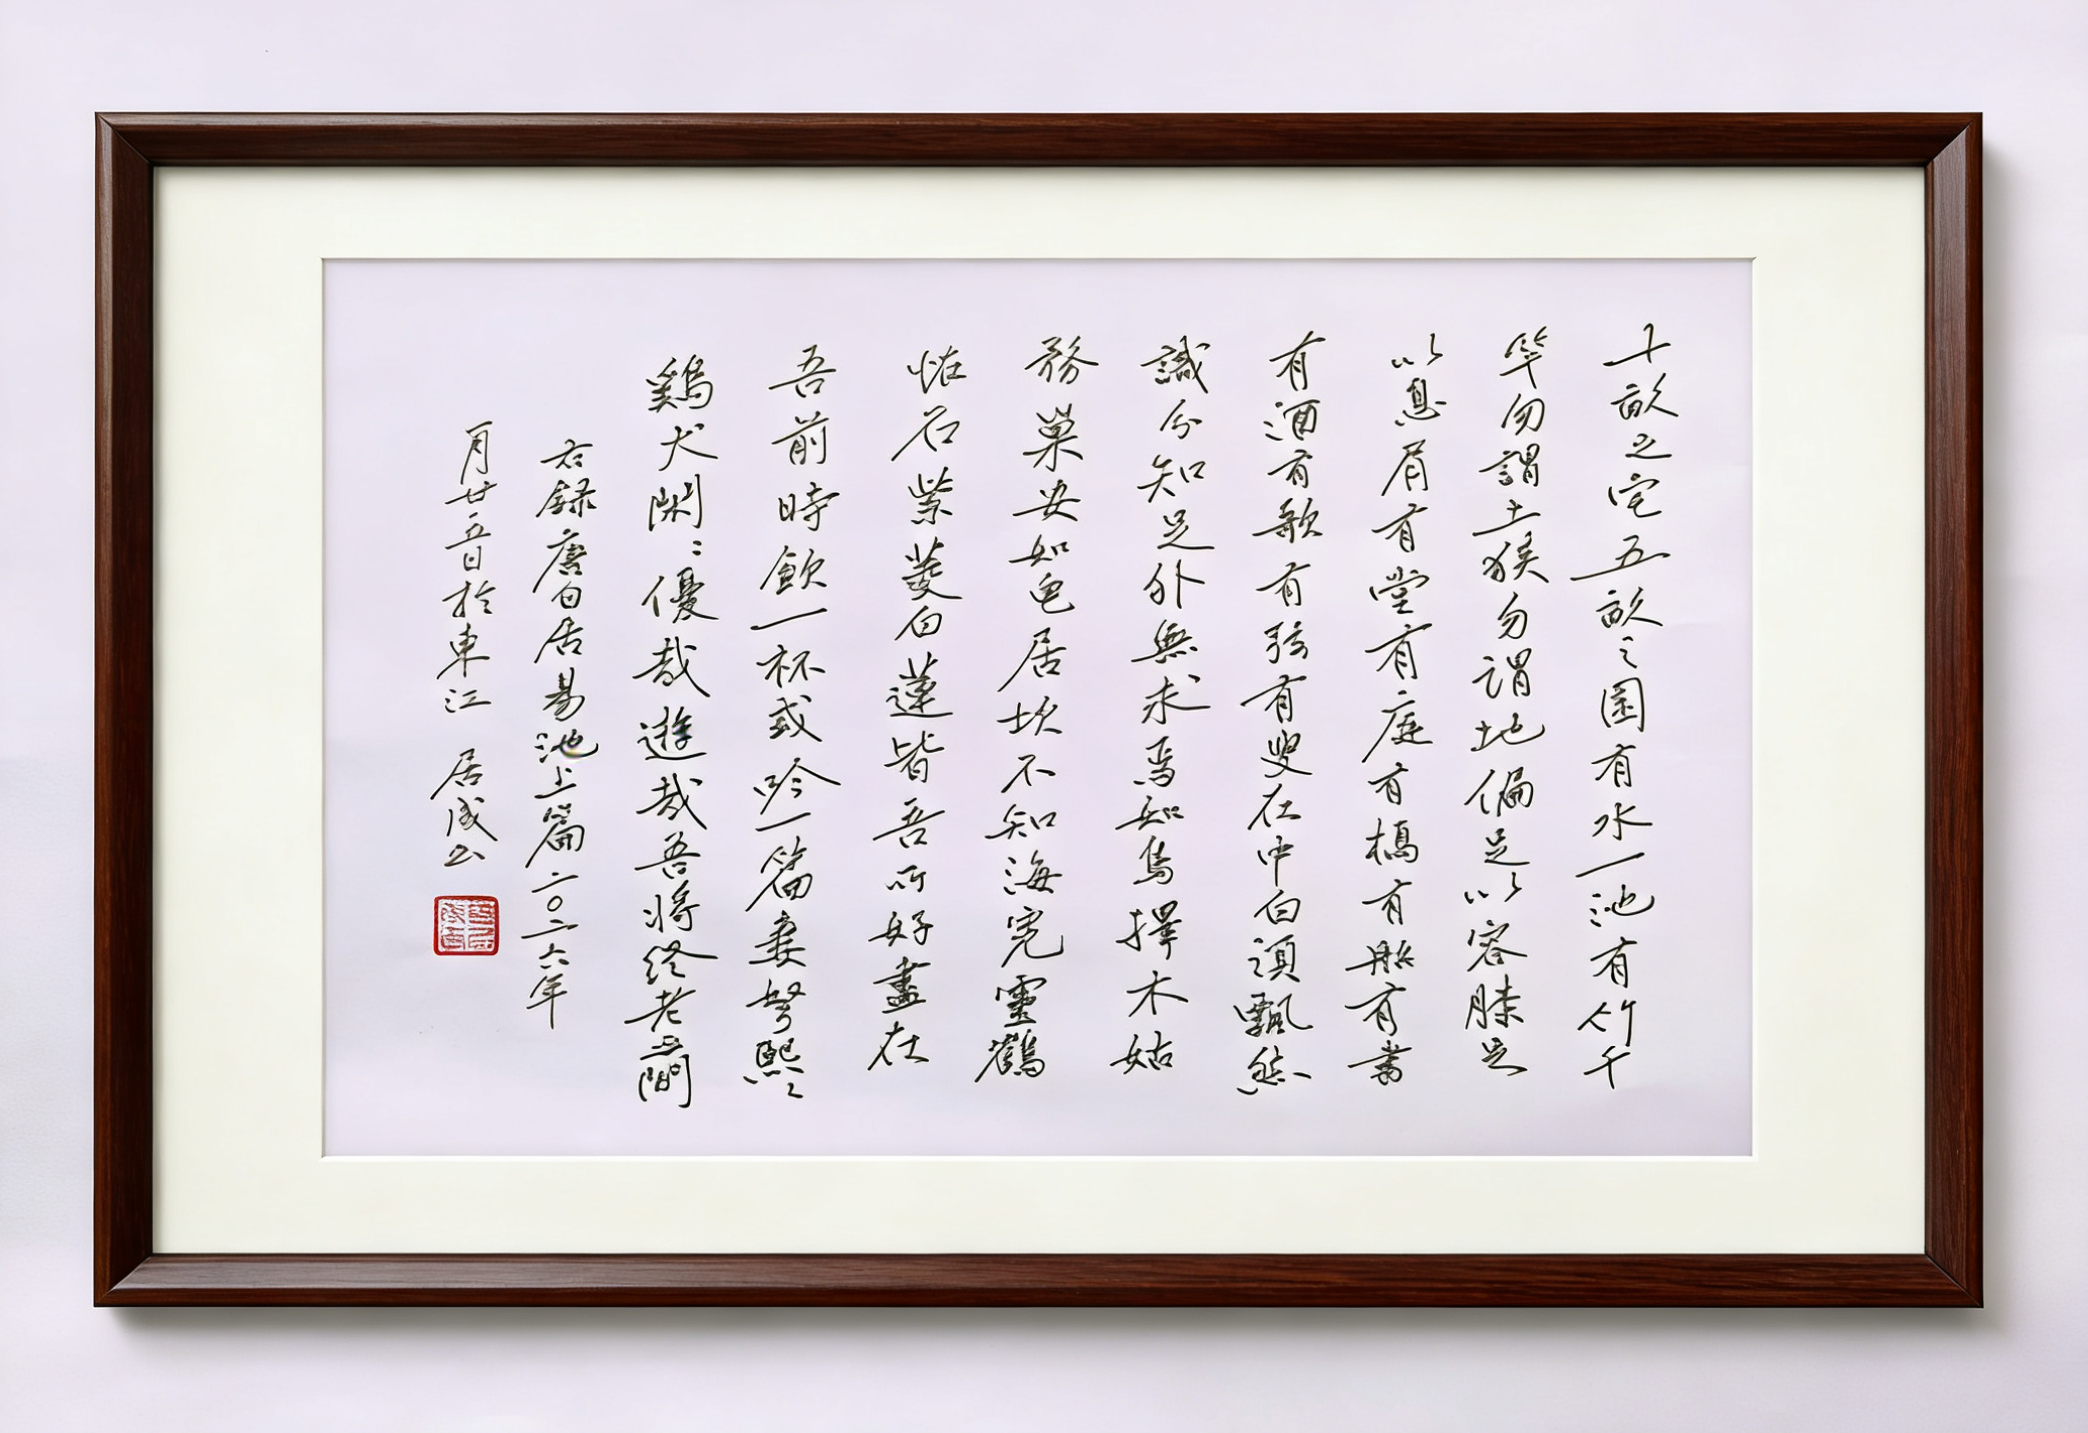 十畝之宅五畝之園有水一池有竹千
竿勿謂土狹勿謂地偏足以容膝足
以息肩有堂有庭有橋有船有書
有酒有歌有弦有叟在中白須飄然
識分知足外無求焉如鳥擇木姑
務巢安如龜居坎不知海寬靈鶴
怪石紫菱白蓮皆吾所好盡在
吾前時飲一杯或吟一篇妻孥熙々
雞犬閑々優哉遊哉吾將終老其間
右録唐白居易池上篇二〇二六年
一月廿五日於東江 居成书